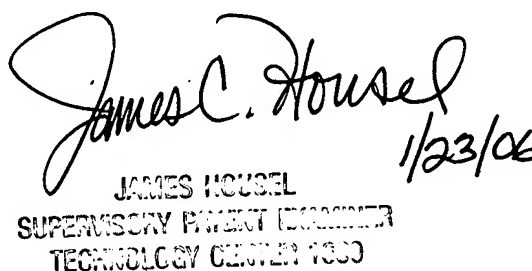 James C. Housel
1/23/06
JAMES HOUSEL
SUPERVISORY PATENT EXAMINER
TECHNOLOGY CENTER